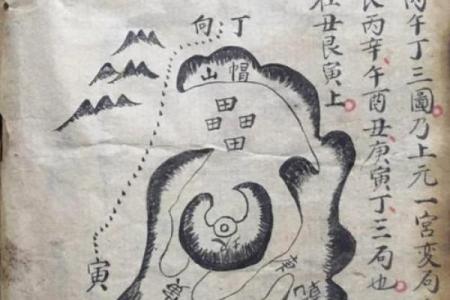 丙午丁三圖乃上元一宮變局
丙辛午酉丑庚寅丁三局也
丑艮寅上
丁向
帽山
田
田田
田
寅